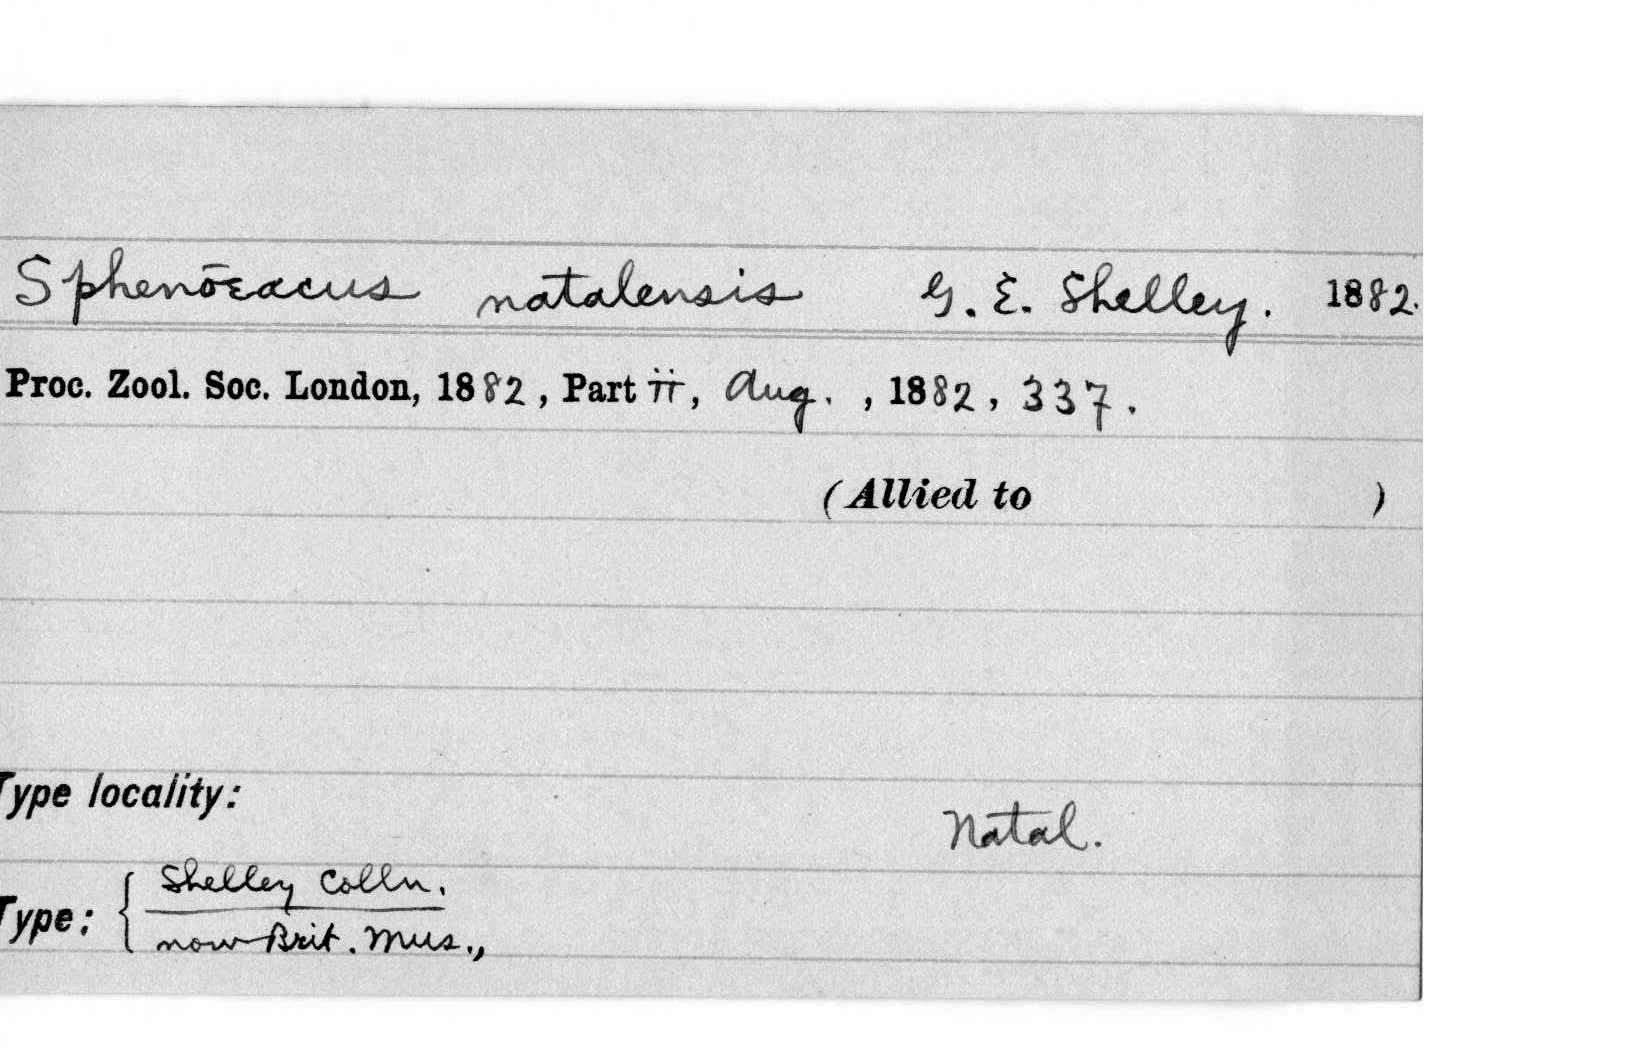 Sphenōeacus natalensis G. E. Shelley. 1882.
Proc. Zool. Soc. London, 1882, Part ii, Aug. , 1882, 337.
(Allied to )
Type locality:
Natal.
Type: { Shelley Colln.
now Brit. Mus.,